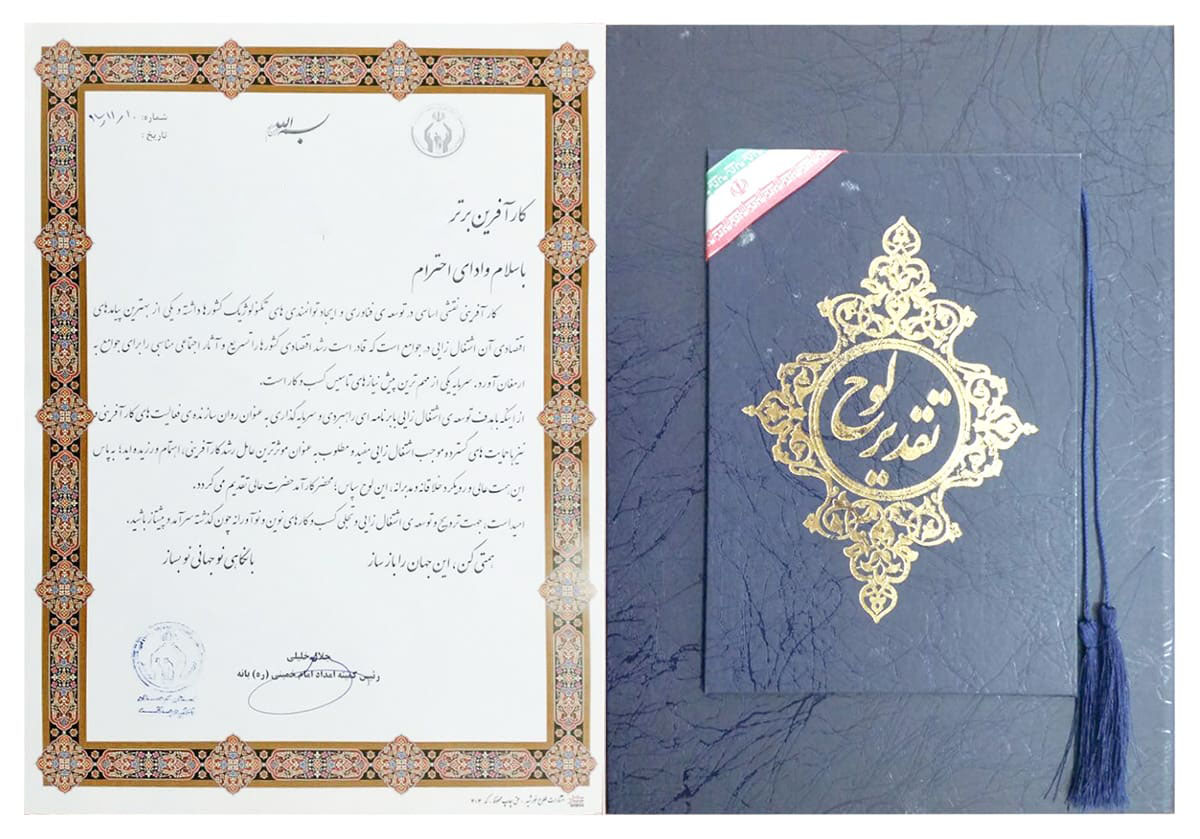 شماره: ۹۷٫۱۱٫۱۰
تاریخ:
بسم الله
کارآفرین برتر
باسلام و ادای احترام
کارآفرینی نقشی اساسی در توسعه ی فناوری و ایجاد توانمندی های تکنولوژیک کشورها داشته و یکی از بهترین پیامدهای
اقتصادی آن اشتغال زایی در جوامع است که قادر است رشد اقتصادی کشورها را تسریع و آثار اجتماعی مناسبی را برای جوامع به
ارمغان آورد، سرمایه یکی از مهم ترین پیش نیازهای تاسیس کسب و کار است.
از اینکه با هدف توسعه ی اشتغال زایی با برنامه ای راهبردی و سرمایه گذاری به عنوان روان سازنده ی فعالیت های کارآفرینی و
نیز با حمایت های گسترده موجب اشتغال زایی مفید و مطلوب به عنوان موثرترین عامل رشد کارآفرینی، اهتمام ورزیده اید؛ به پاس
این همت عالی و رویکرد خلاقانه و مدبرانه، این لوح سپاس؛ محضر کارآمد حضرت عالی تقدیم می گردد.
امید است، جهت ترویج و توسعه ی اشتغال زایی و تجلی کسب و کارهای نوین و نوآورانه چون گذشته سرآمد و پیشتاز باشید.
همتی کن، این جهان را باز ساز
با نگاهی نو جهانی نو بساز
جلال خلیلی
رئیس کمیته امداد امام خمینی (ره) بانه
لوح
تقدیر